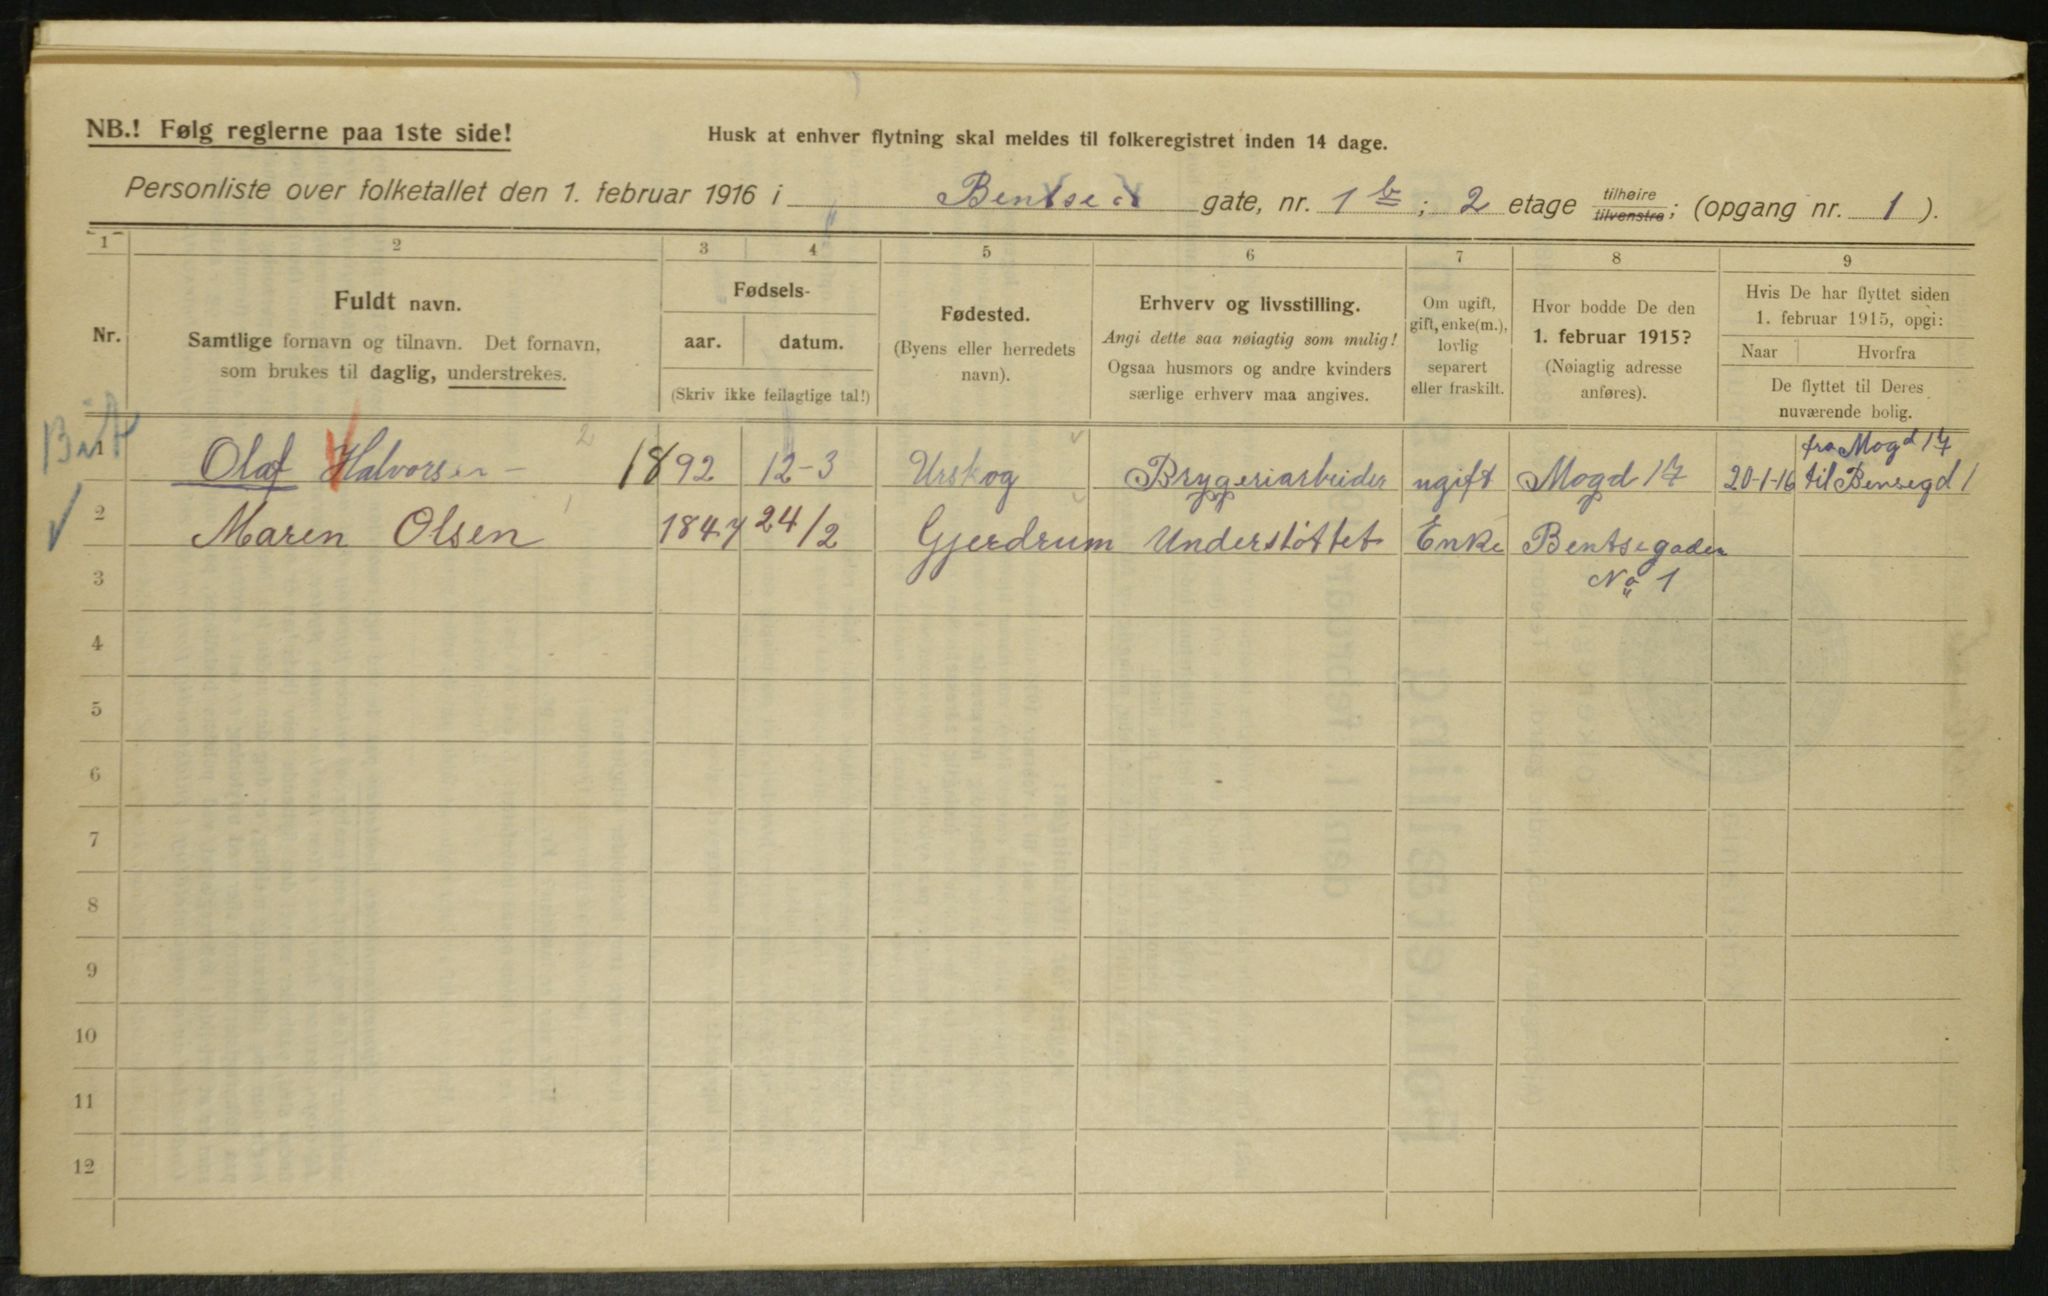 NB.! Følg reglerne paa 1ste side!
Husk at enhver flytning skal meldes til folkeregistret inden 14 dage.
Personliste over folketallet den 1. februar 1916 i Bentse gate, nr. 1 b; 2 etage tilhøire tilvenstre; (opgang nr. 1).
1 2 3 4 5 6 7 8 9
Nr.
Fuldt navn.
Samtlige fornavn og tilnavn. Det fornavn,
som brukes til daglig, understrekes.
Fødsels-
aar. datum.
(Skriv ikke feilagtige tal!)
Fødested.
(Byens eller herredets
navn).
Erhverv og livsstilling.
Angi dette saa nøiagtig som mulig!
Ogsaa husmors og andre kvinders
særlige erhverv maa angives.
Om ugift,
gift, enke(m.),
lovlig
separert
eller fraskilt.
Hvor bodde De den
1. februar 1915?
(Nøiagtig adresse
anføres).
Hvis De har flyttet siden
1. februar 1915, opgi:
Naar Hvorfra
De flyttet til Deres
nuværende bolig.
fra Mogd 17
1 Olaf Halvorsen 2 1892 12-3 Urskog Bryggeriarbeider ugift Mogd 17 20-1-16 til Bensegd 1
2 Maren Olsen 1 1847 24/2 Gjerdrum Understøttet Enke Bentsegaden
3 No 1
4
5
6
7
8
9
10
11
12